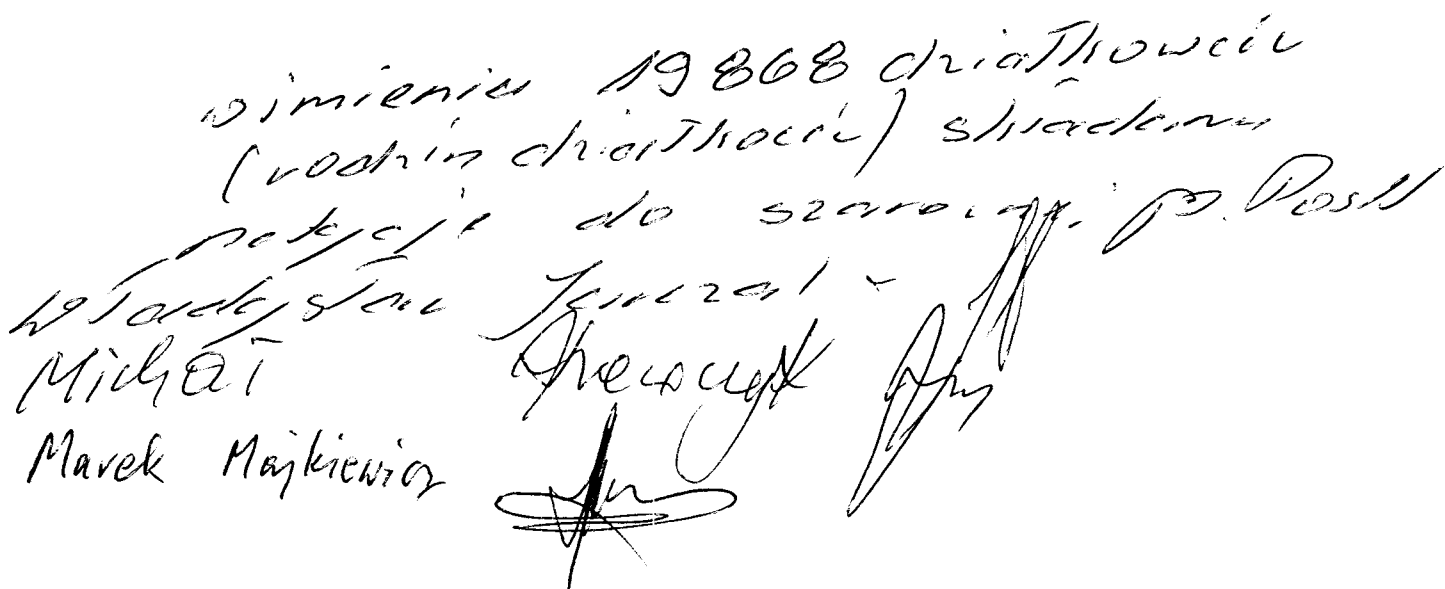 wimieniu 19868 działkowców
(rodzin działkowców) składamy
petycję do p. Posła
Władysław
Michał
Marek Majkiewicz